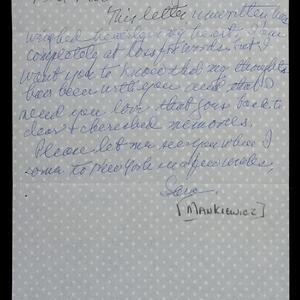 This letter unwritten has
weighed heavily on my heart. I am
completely at loss for words but I
want you to know that my thoughts
have been with you and that I
send you love that goes back to
dear & cherished memories.
Please let me see you when I
come to New York in a few weeks,
Sara.
[MANKIEWICZ]